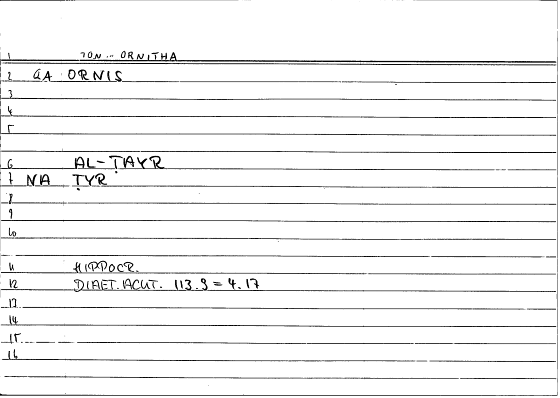 1 TON - ORNITHA
2 GA ORNIS
3
4
5
6 AL-ṬAYR
7 NA ṬYR
8
9
10
11 HIPPOCR.
12 DIAET. ACUT. 113.9 = 4.17
13
14
15
16